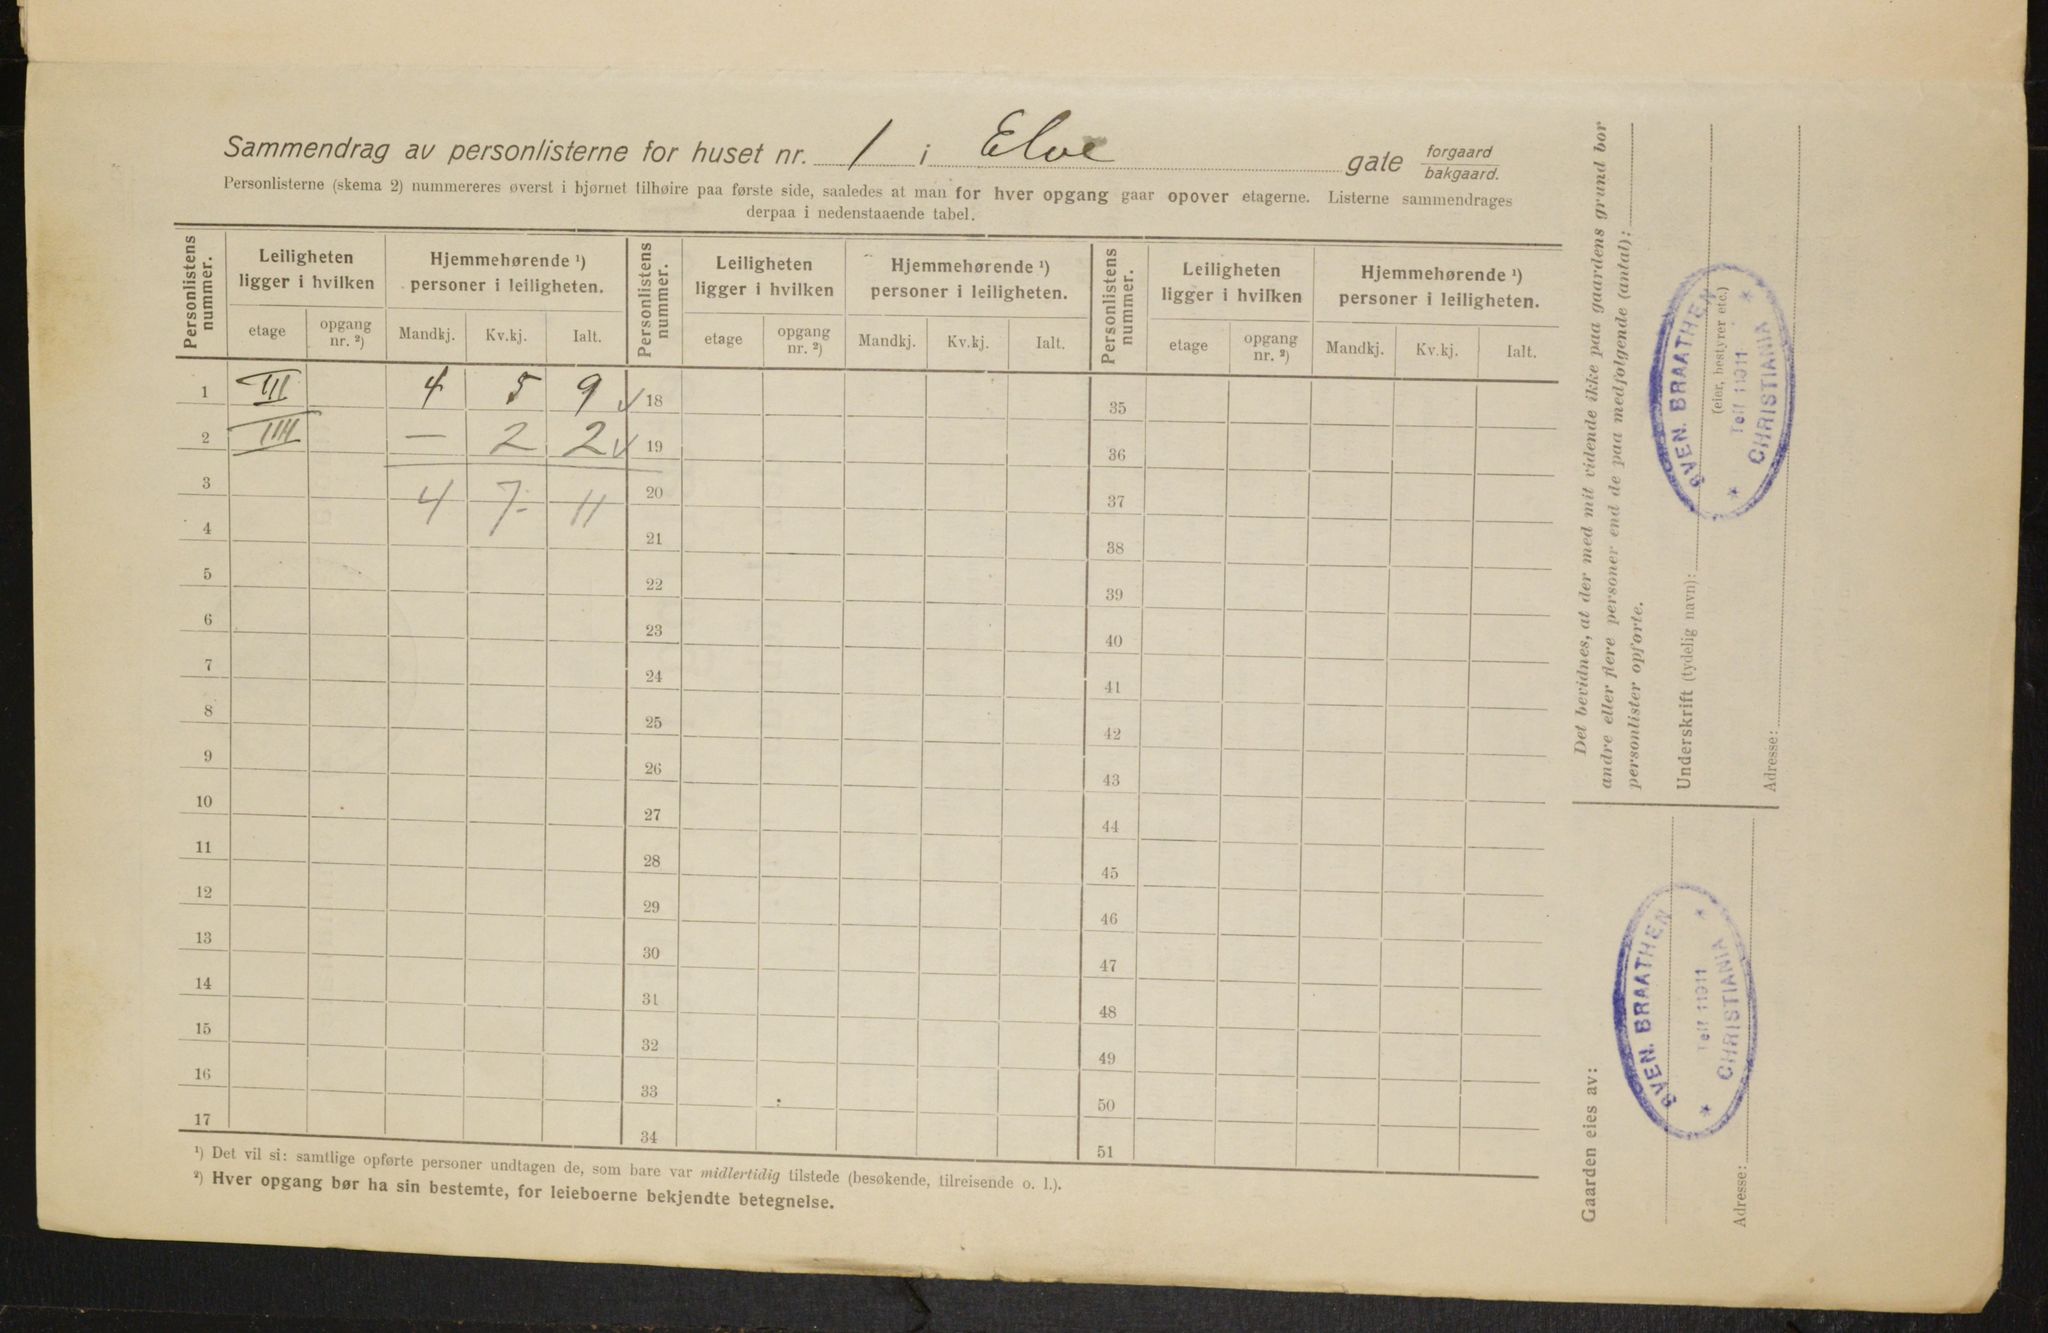 Sammendrag av personlisterne for huset nr. 1 i Elve gate forgaard bakgaard.
Personlisterne (skema 2) nummereres øverst i hjørnet tilhøire paa første side, saaledes at man for hver opgang gaar opover etagerne. Listerne sammendrages
derpaa i nedenstaaende tabel.
Personlistens nummer. Leiligheten ligger i hvilken Hjemmehørende ¹) personer i leiligheten. Personlistens nummer. Leiligheten ligger i hvilken Hjemmehørende ¹) personer i leiligheten. Personlistens nummer. Leiligheten ligger i hvilken Hjemmehørende ¹) personer i leiligheten.
etage opgang nr. ²) Mandkj. Kv.kj. Ialt. etage opgang nr. ²) Mandkj. Kv.kj. Ialt. etage opgang nr. ²) Mandkj. Kv.kj. Ialt.
1 III 4 5 9 ✓ 18 35
2 IIII — 2 2 ✓ 19 36
3 4 7 11 20 37
4 21 38
5 22 39
6 23 40
7 24 41
8 25 42
9 26 43
10 27 44
11 28 45
12 29 46
13 30 47
14 31 48
15 32 49
16 33 50
17 34 51
¹) Det vil si: samtlige opførte personer undtagen de, som bare var midlertidig tilstede (besøkende, tilreisende o. l.).
²) Hver opgang bør ha sin bestemte, for leieboerne bekjendte betegnelse.
Det bevidnes, at der med mit vidende ikke paa gaardens grund bor
andre eller flere personer end de paa medfølgende (antal):
personlister opførte.
Underskrift (tydelig navn):
(eier, bestyrer etc.)
Adresse:
SVEN. BRAATHEN
Telf 11911
* CHRISTIANIA *
Gaarden eies av:
Adresse:
SVEN. BRAATHEN
Telf 11911
* CHRISTIANIA *